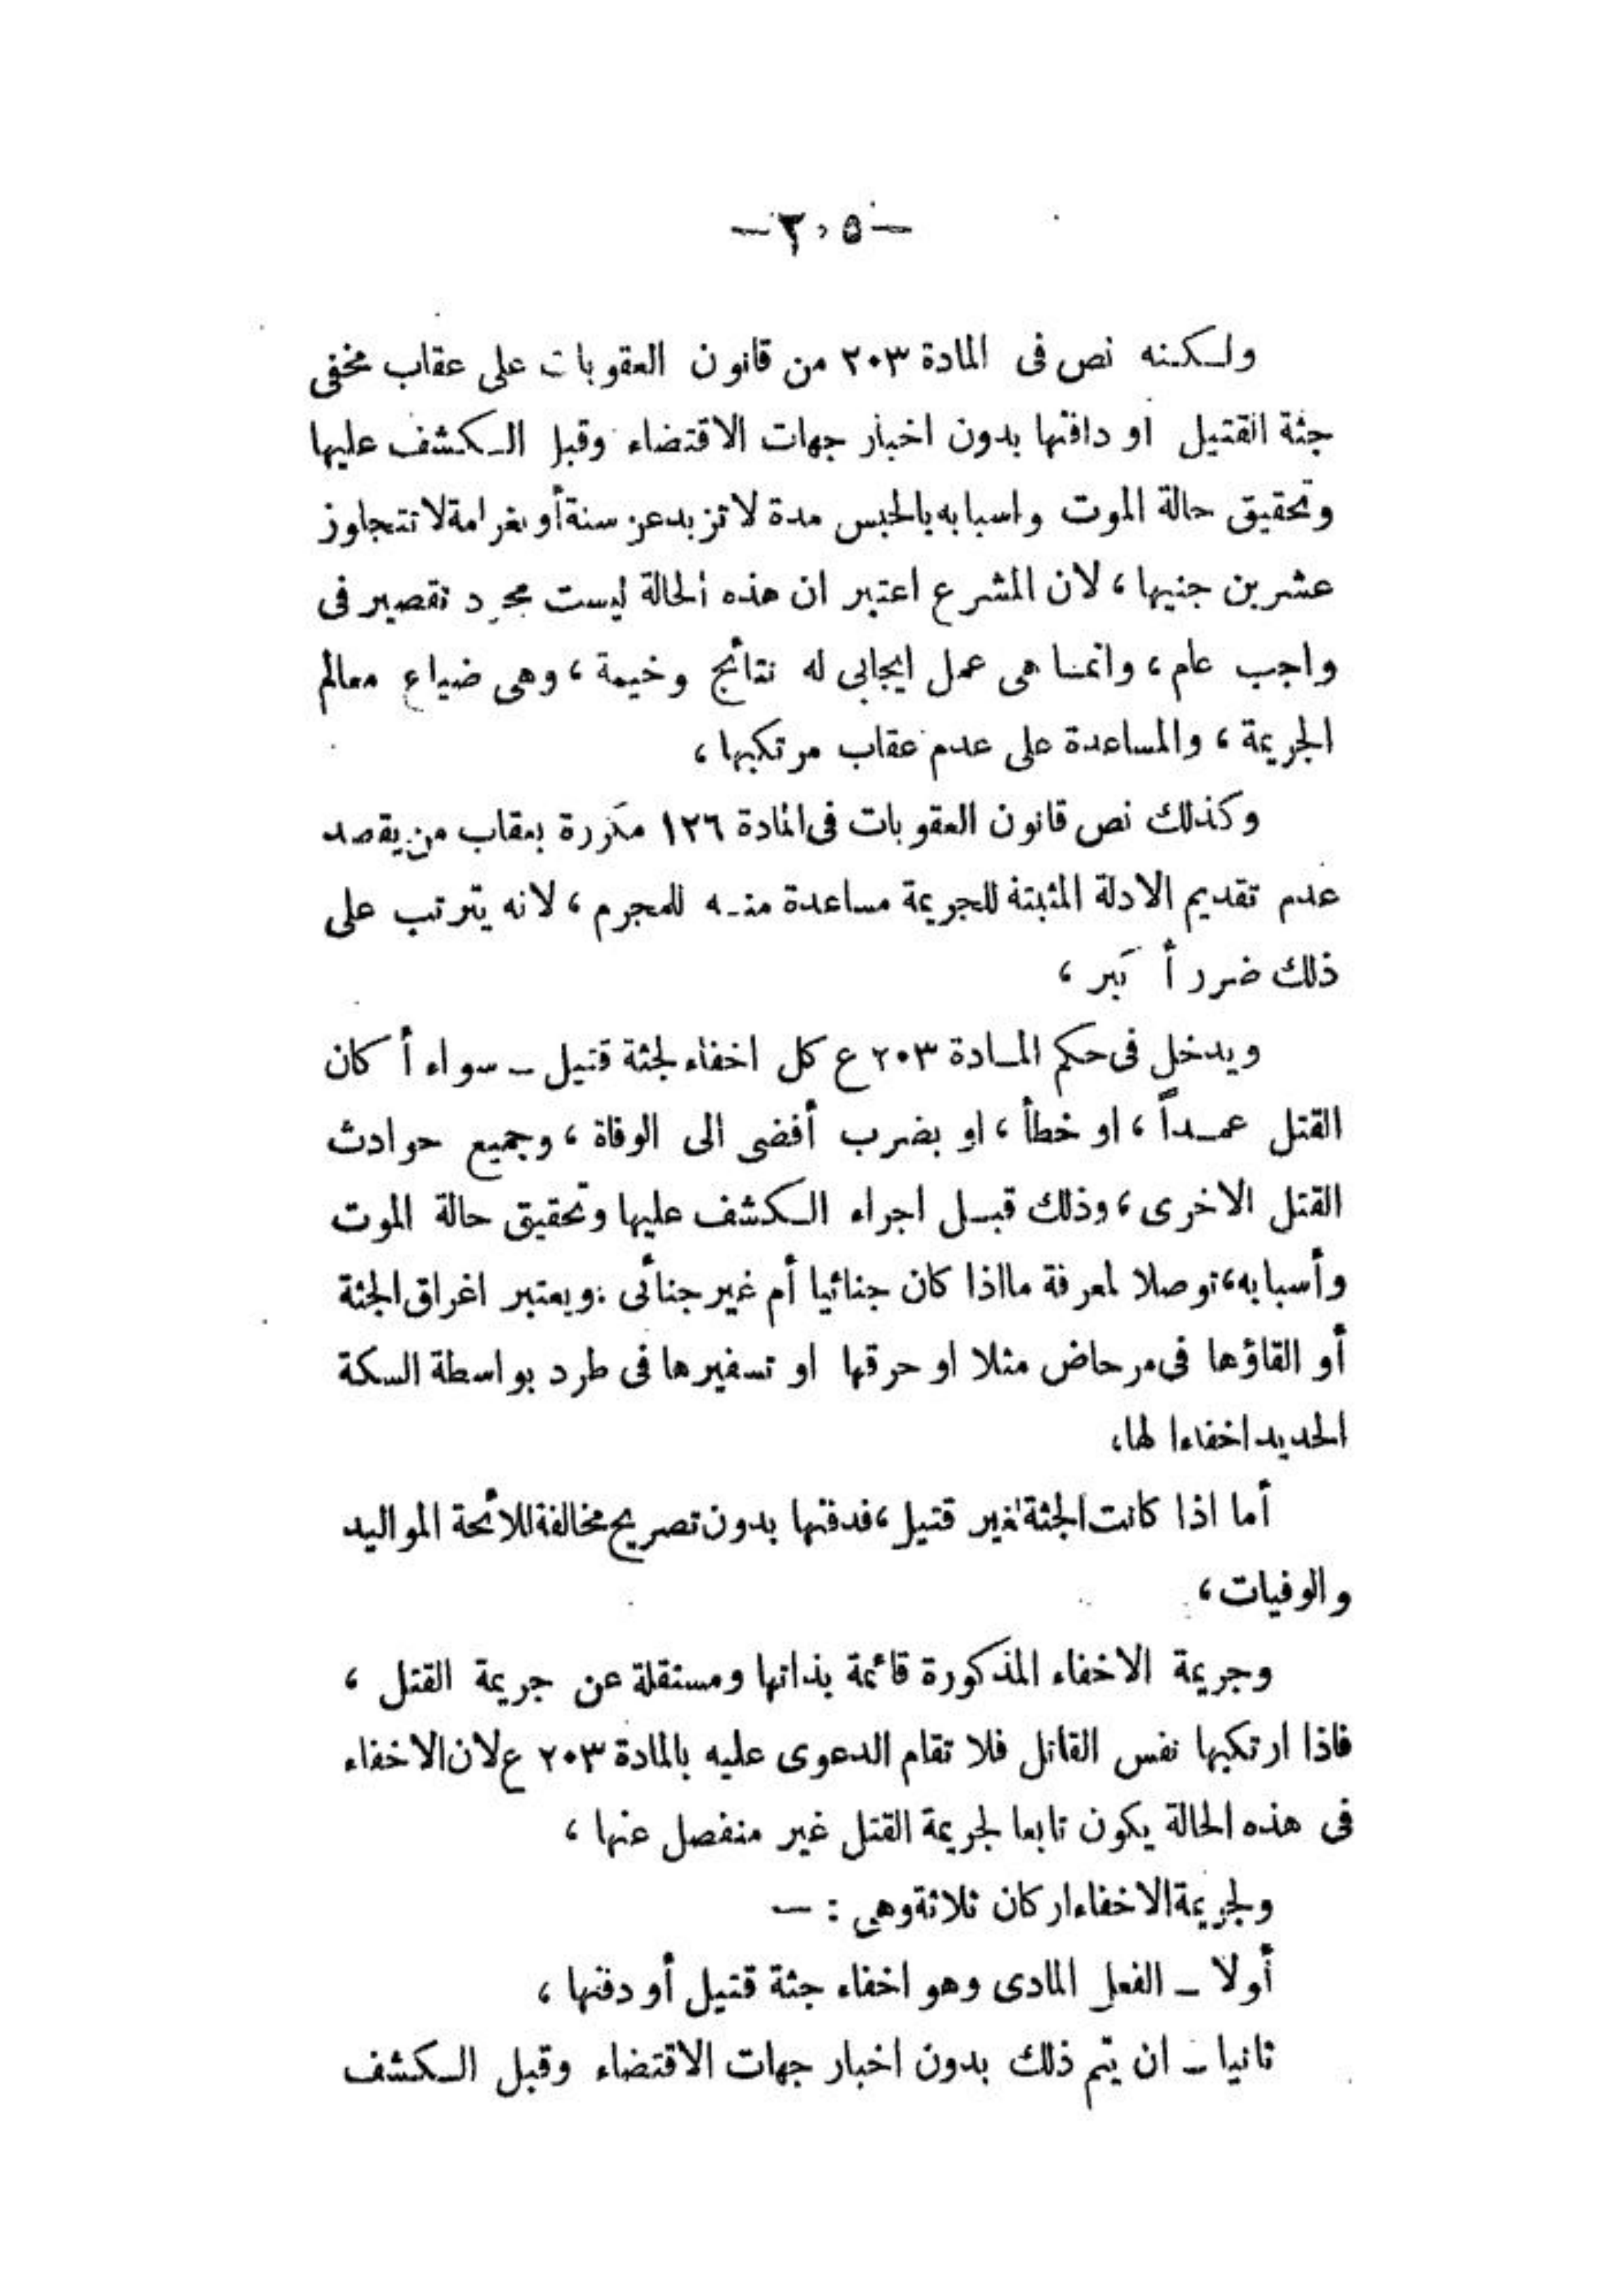 — ٢٠٥ —
ولكنه نص فى المادة ٢٠٣ من قانون العقوبات على عقاب مخفى
جثة القتيل او دافنها بدون اخبار جهات الاقتضاء وقبل الكشف عليها
وتحقيق حالة الموت واسبابه بالحبس مدة لا تزيد عن سنة أو بغرامة لا تتجاوز
عشرين جنيها ، لان المشرع اعتبر ان هذه الحالة ليست مجرد تقصير فى
واجب عام ، وانما هى عمل ايجابى له نتائج وخيمة ، وهى ضياع معالم
الجريمة ، والمساعدة على عدم عقاب مرتكبها ،
وكذلك نص قانون العقوبات فى المادة ١٢٦ مكررة بعقاب من يقصد
عدم تقديم الادلة المثبتة للجريمة مساعدة منه للمجرم ، لانه يترتب على
ذلك ضرر أكبر ،
ويدخل فى حكم المادة ٢٠٣ ع كل اخفاء لجثة قتيل ــ سواء أكان
القتل عمداً ، او خطأ ، او بضرب أفضى الى الوفاة ، وجميع حوادث
القتل الاخرى ، وذلك قبل اجراء الكشف عليها وتحقيق حالة الموت
وأسبابه ، توصلا لمعرفة ما اذا كان جنائيا أم غير جنائى . ويعتبر اغراق الجثة
أو القاؤها فى مرحاض مثلا او حرقها او تسفيرها فى طرد بواسطة السكة
الحديد اخفاءا لها ،
أما اذا كانت الجثة لغير قتيل ، فدفنها بدون تصريح مخالفة للائحة المواليد
والوفيات ،
وجريمة الاخفاء المذكورة قائمة بذاتها ومستقلة عن جريمة القتل ،
فاذا ارتكبها نفس القاتل فلا تقام الدعوى عليه بالمادة ٢٠٣ ع لان الاخفاء
فى هذه الحالة يكون تابعا لجريمة القتل غير منفصل عنها ،
ولجريمة الاخفاء اركان ثلاثة وهى : —
أولا ــ الفعل المادى وهو اخفاء جثة قتيل أو دفنها ،
ثانيا ــ ان يتم ذلك بدون اخبار جهات الاقتضاء وقبل الكشف